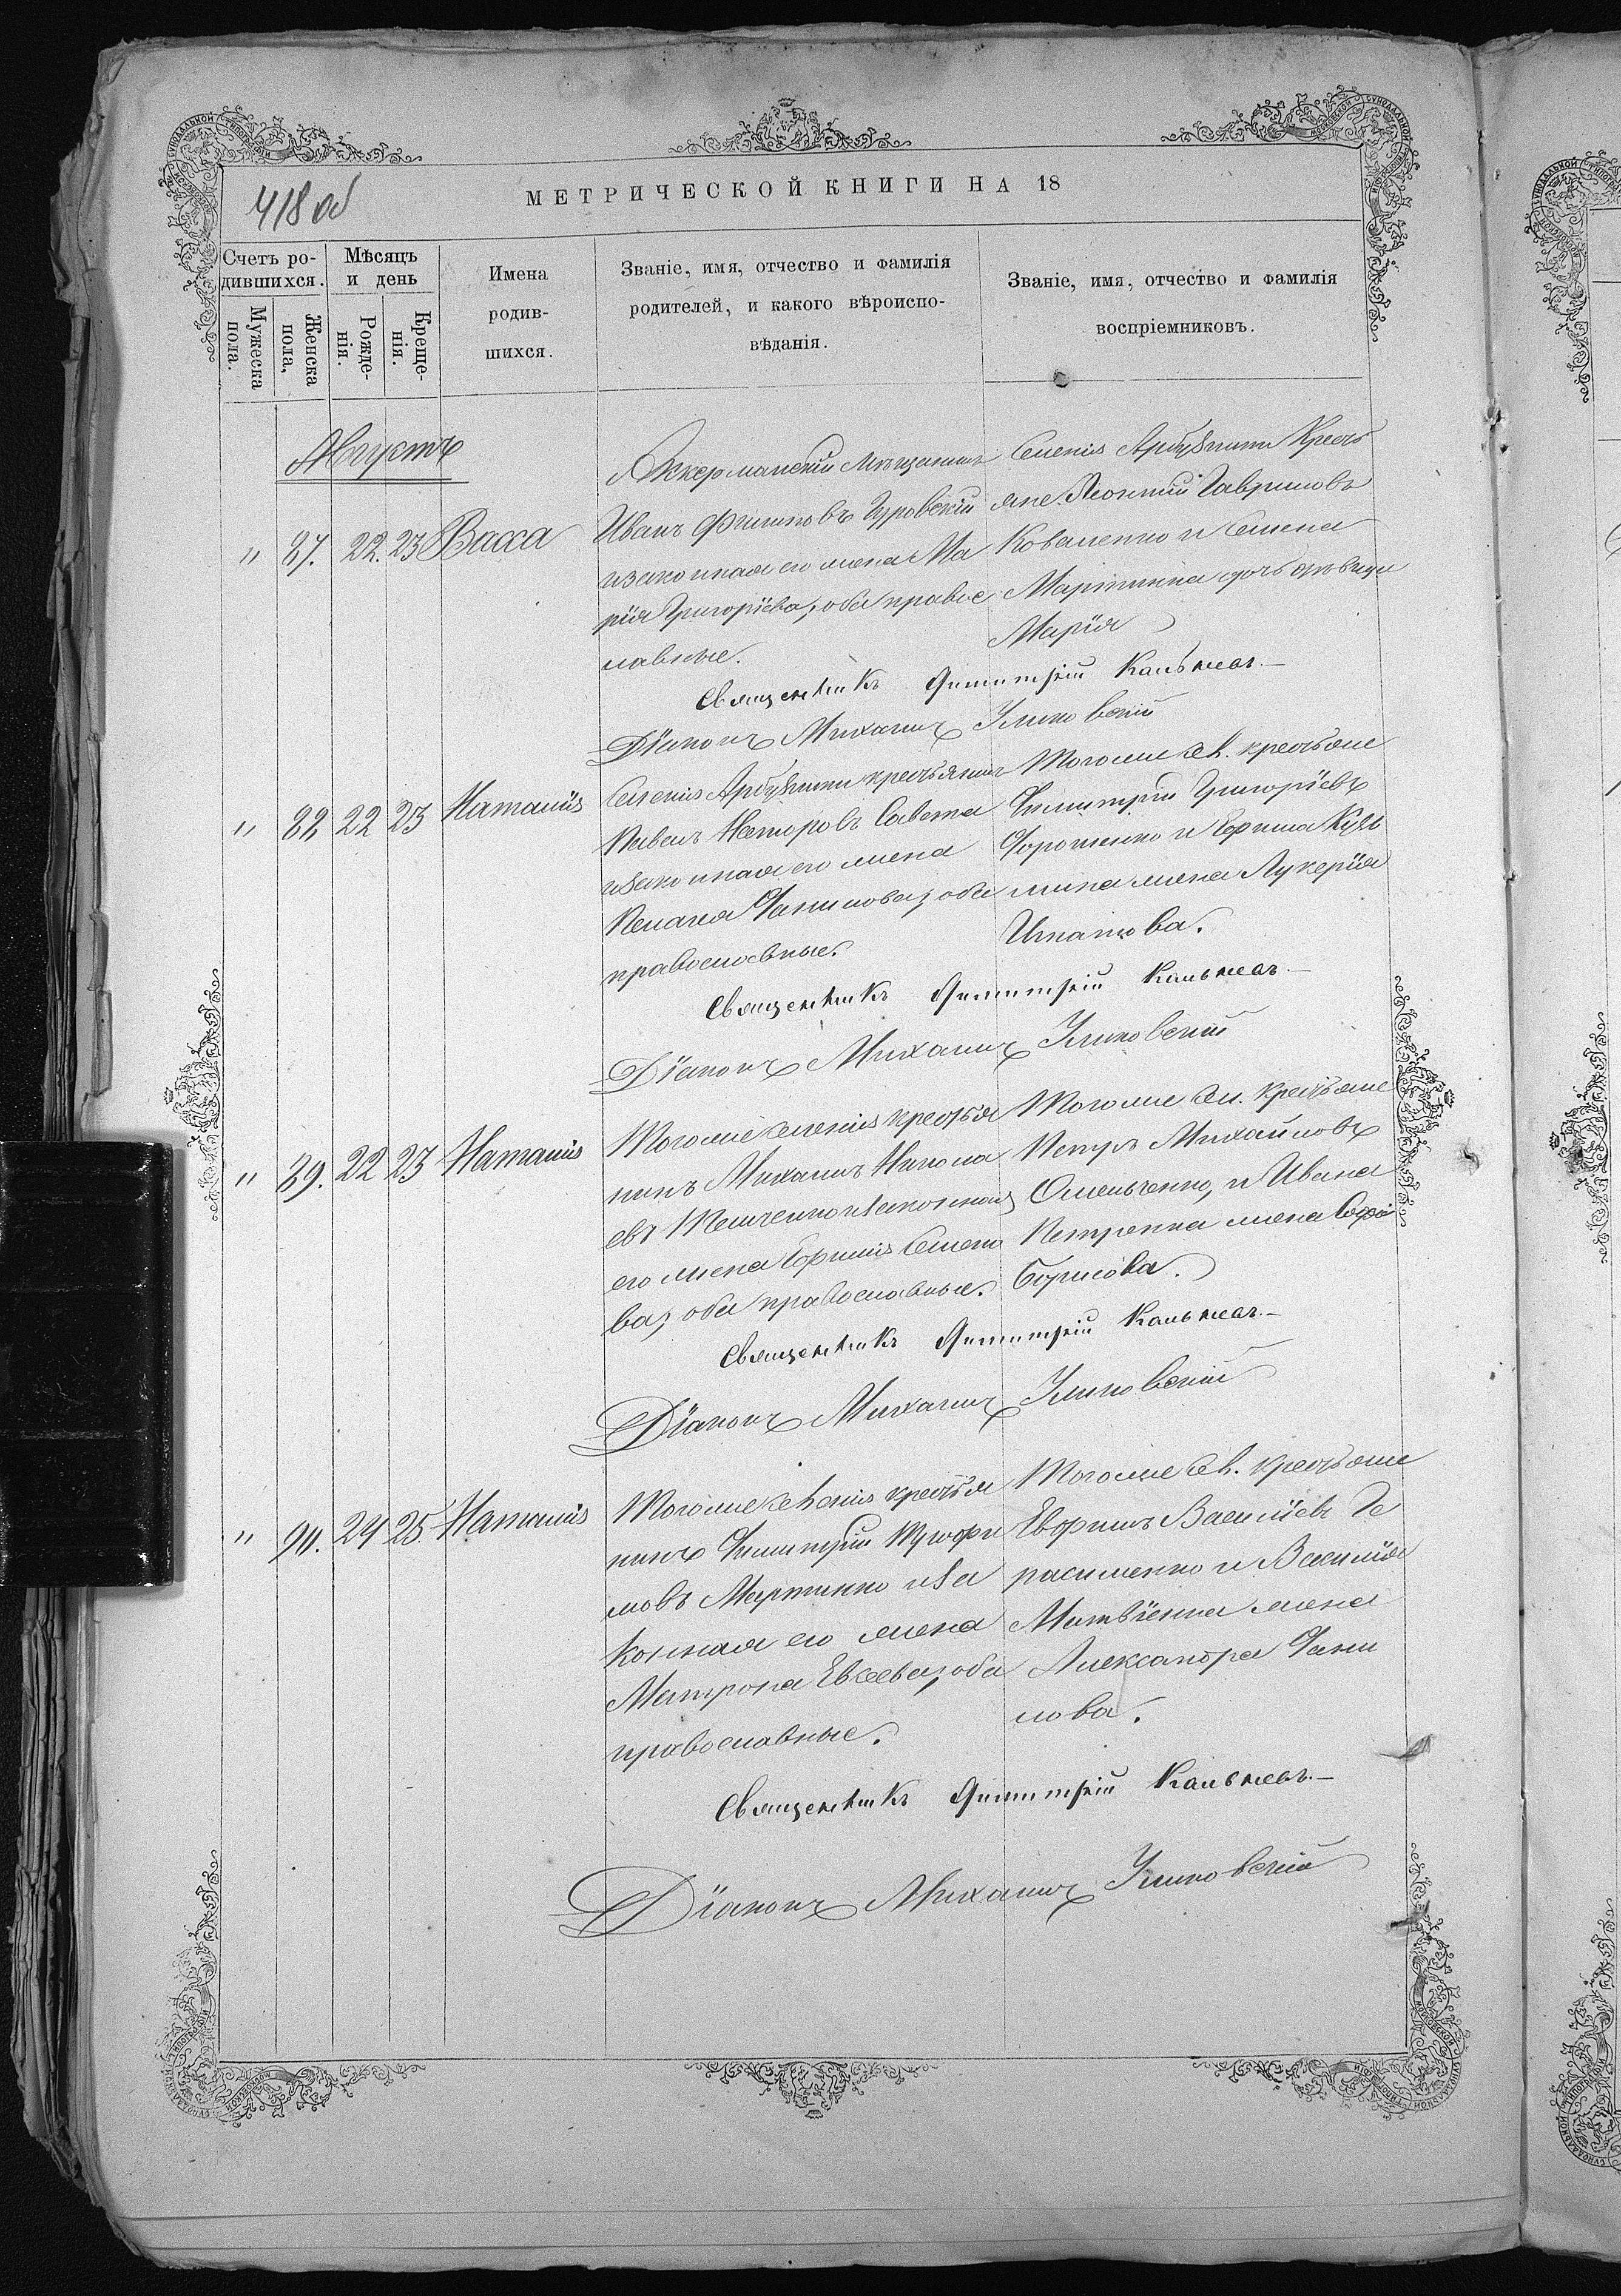 418 об
МЕТРИЧЕСКОЙ КНИГИ НА 18
Счетъ ро-
дившихся.
Мужеска
пола.
Женска
пола,
Мѣсяцъ
и день
Рожде-
нія.
Креще-
нія.
Имена
родив-
шихся.
Званіе, имя, отчество и фамилія
родителей, и какого вѣроиспо-
вѣданія.
Званіе, имя, отчество и фамилія
воспріемниковъ.
Августъ
" 87. 22. 23 Васса
Аккерманский мѣщанинъ
Иванъ Филиповъ Гуровскій
изаконная его жена Ма
рія Григоріева, оба правос
лавные.
Селенія Арбузинки Кресть
яне Леонтій Гавриловъ
Коваленко и Семена
Мартинина дочь дѣвица
Марія
Священникъ Димитрій
Діаконъ Михаилъ
" 88 22 23 Наталія
Селенія Арбузинки крестьянинъ
Павелъ Несторовъ Савота
изаконная его жена
Пелагея Данилова, оба
православные.
Тогоже сел. крестьяне
Димитрій Григоріевъ
Дорошенко и Ефима Кузь
мина жена Лукерія
Игнатова.
Священникъ Димитрій
Діаконъ Михаилъ
" 89. 22 23 Наталія
Тогоже селенія крестья
нинъ Михаилъ Никола
евъ изаконная
его жена Ефимія Семено
ва, оба православные.
Тогоже сел. крестьяне
Петръ Михайловъ
Омельченко, и Ивана
Петренка жена Софія
Борисова.
Священникъ Димитрій
Діаконъ Михаилъ
" 90. 24 25. Наталія
Тогоже селенія крестья
нинъ Димитрій Трофи
мовъ Мартинко иза
конная его жена
Матрона Евсеева, оба
православные.
Тогоже сел. крестьяне
Евфимъ Василіевъ Ге
расименко и Василія
Матвіенка жена
Александра Дани
лова.
Священникъ Димитрій
Діаконъ Михаилъ